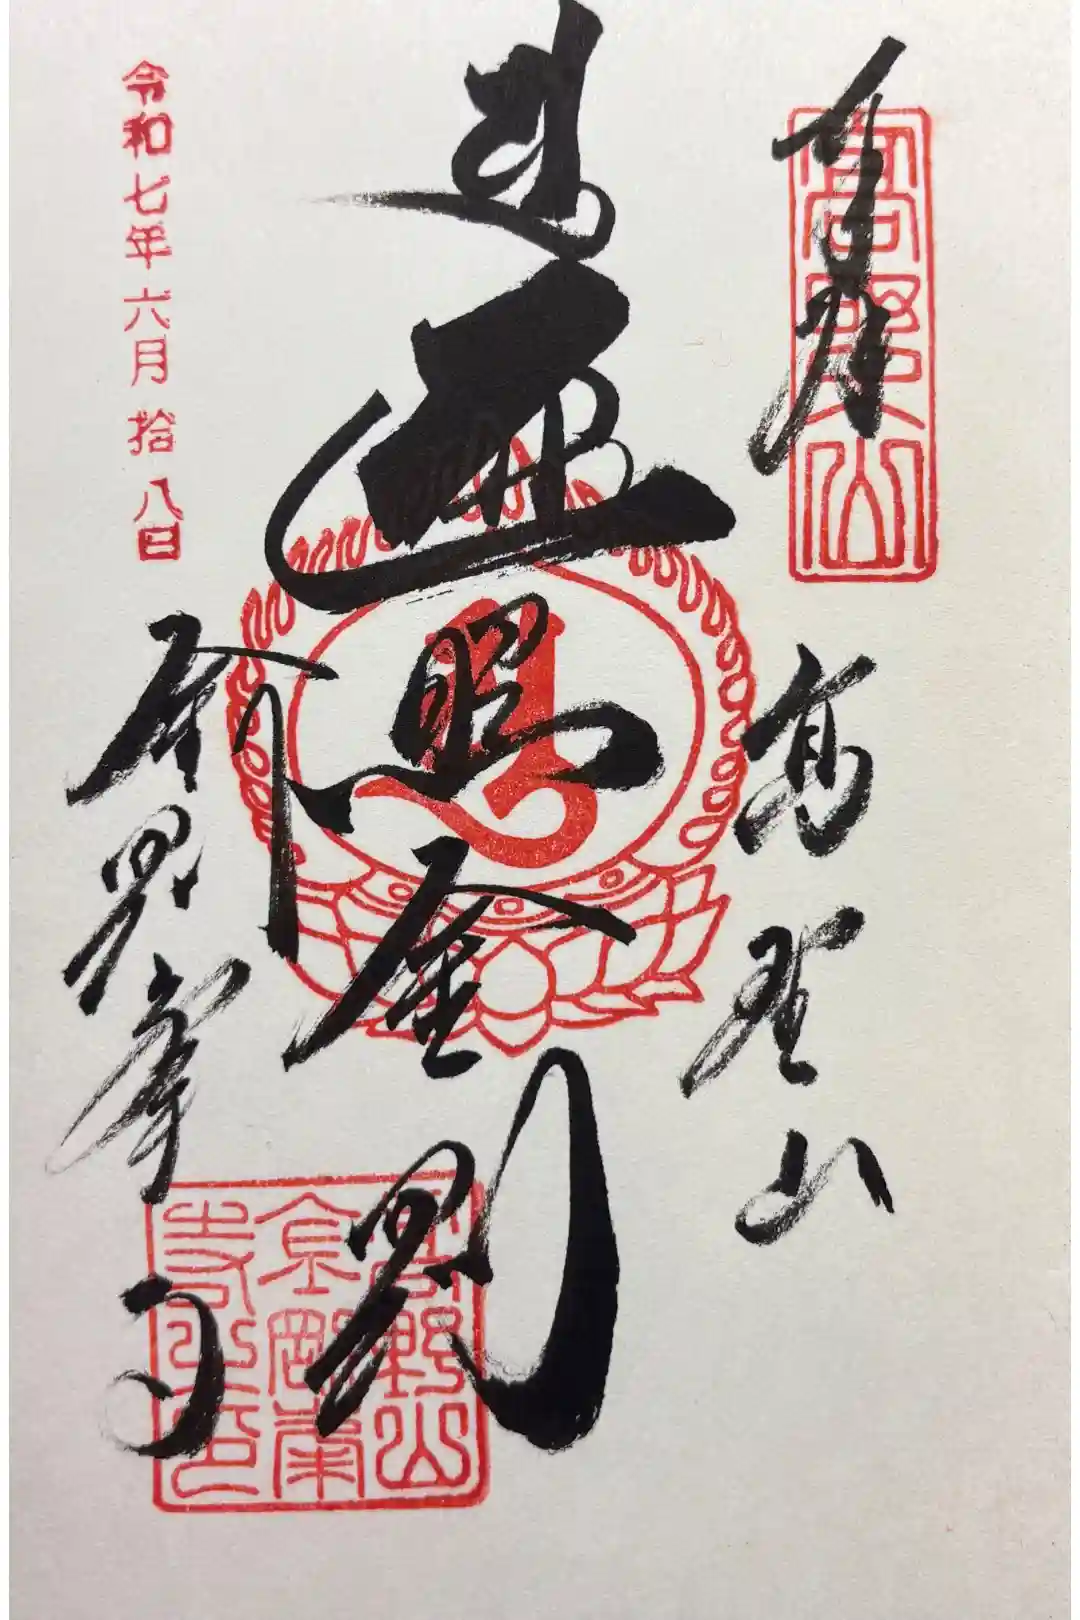 奉拝
高野山
高野山
遍照金剛
金剛峯寺
高野山
金剛峯
寺之印
令和七年六月拾八日